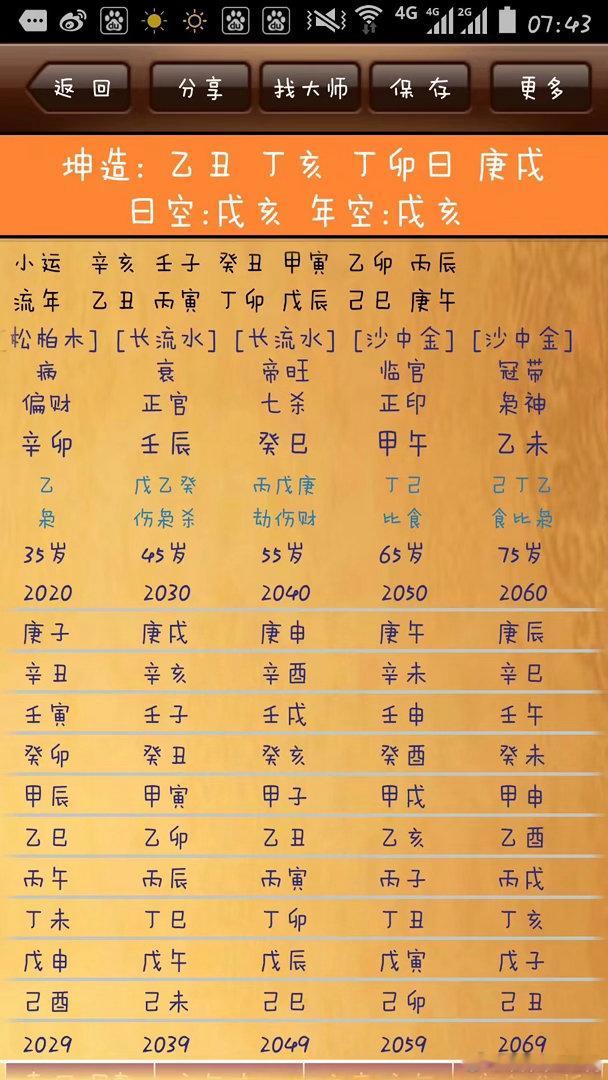 4G 4G 2G 07:43
返回 分享 找大师 保存 更多
坤造: 乙丑 丁亥 丁卯日 庚戌
日空:戌亥 年空:戌亥
小运 辛亥 壬子 癸丑 甲寅 乙卯 丙辰
流年 乙丑 丙寅 丁卯 戊辰 己巳 庚午
松柏木] [长流水] [长流水] [沙中金] [沙中金]
病 衰 帝旺 临官 冠带
偏财 正官 七杀 正印 枭神
辛卯 壬辰 癸巳 甲午 乙未
乙 戊乙癸 丙戊庚 丁己 己丁乙
枭 伤枭杀 劫伤财 比食 食比枭
35岁 45岁 55岁 65岁 75岁
2020 2030 2040 2050 2060
庚子 庚戌 庚申 庚午 庚辰
辛丑 辛亥 辛酉 辛未 辛巳
壬寅 壬子 壬戌 壬申 壬午
癸卯 癸丑 癸亥 癸酉 癸未
甲辰 甲寅 甲子 甲戌 甲申
乙巳 乙卯 乙丑 乙亥 乙酉
丙午 丙辰 丙寅 丙子 丙戌
丁未 丁巳 丁卯 丁丑 丁亥
戊申 戊午 戊辰 戊寅 戊子
己酉 己未 己巳 己卯 己丑
2029 2039 2049 2059 2069